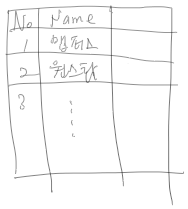 No Name
1 맵퍼스
2 원스닥
3